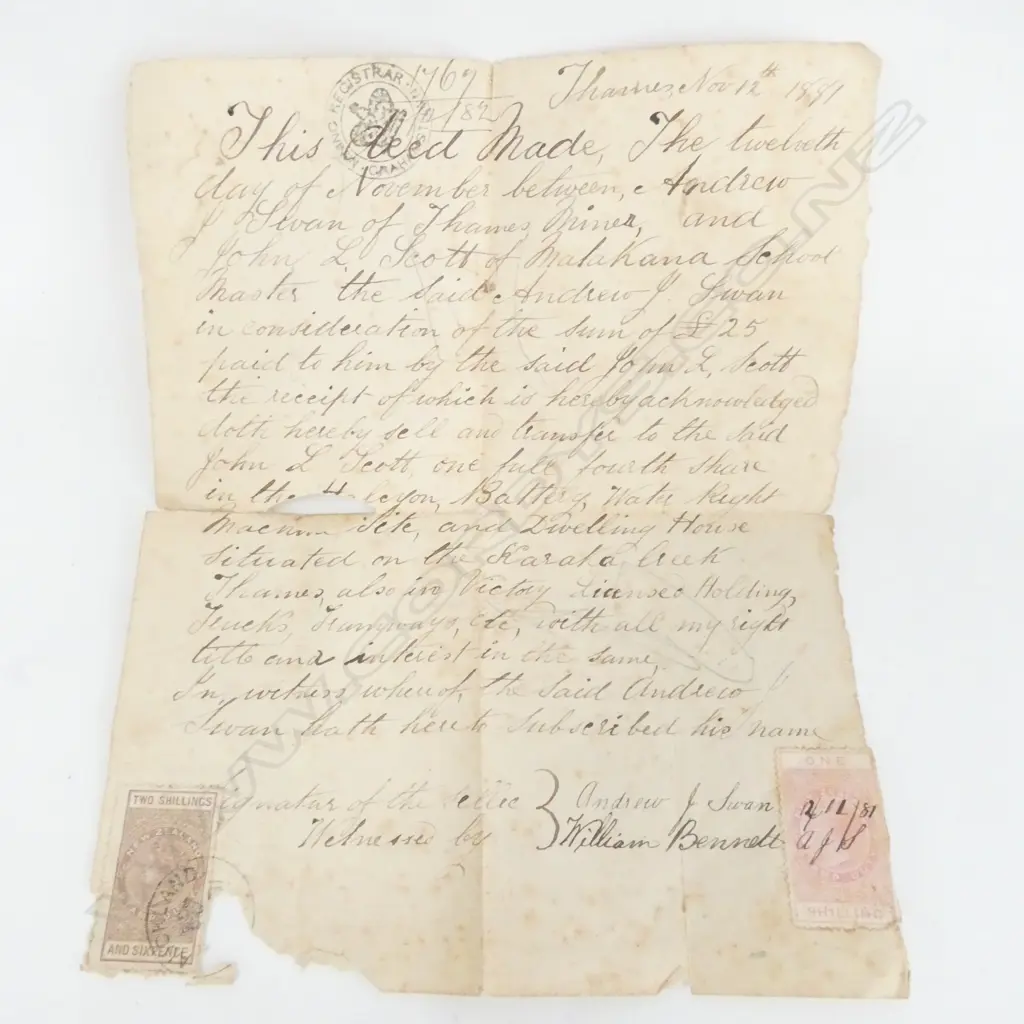 REGISTRAR
1767
182
Thames, Nov 12th 1881
This deed Made, The twelveth
day of November between, Andrew
J Swan of Thames Miner, and
John L Scott of Matakana School
Master the Said Andrew J. Swan
in consideration of the sum of £ 25
paid to him by the said John L, Scott
the receipt of which is hereby acknowledged
doth hereby sell and transfer to the said
John L Scott, one full fourth share
in the Halcyon, Battery, Water Right
Machine Site, and Dwelling House
situated on the Karaka Creek
Thames, also in Victory Licensed Holding,
Trucks, Tramways, Etc, with all my right
title and interest in the same,
In, witness whereof, the Said Andrew J
Swan hath here to Subscribed his name
of the
Witnessed by
Andrew J Swan
William Bennett
TWO SHILLINGS
AND SIXPENCE
ONE
12/11/81
A J S
SHILLING